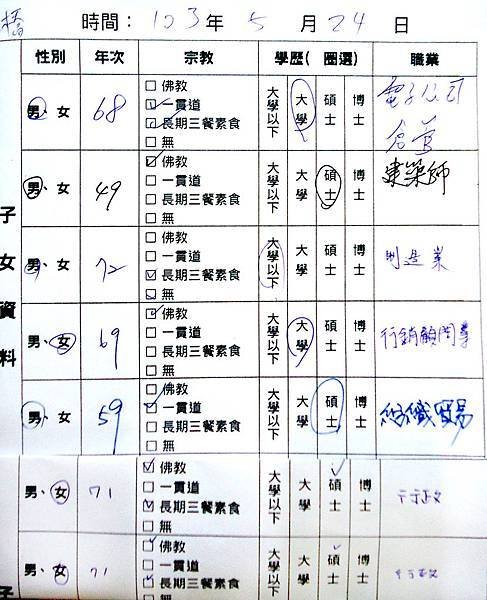 橋 時間：103年 5 月 24 日
性別 年次 宗教 學歷( 圈選) 職業
子女資料
男、女 68 □佛教 大學以下 大學 碩士 博士 電子公司
☑一貫道 倉管
☑長期三餐素食
□無
男、女 49 ☑佛教 大學以下 大學 碩士 博士 建築師
□一貫道
□長期三餐素食
□無
男、女 72 □佛教 大學以下 大學 碩士 博士 制造業
□一貫道
☑長期三餐素食
☑無
男、女 69 ☑佛教 大學以下 大學 碩士 博士 行銷顧問業
□一貫道
□長期三餐素食
□無
男、女 59 □佛教 大學以下 大學 碩士 博士 紡織貿易
☑一貫道
□長期三餐素食
□無
男、女 71 ☑佛教 大學以下 大學 碩士 博士 行政
□一貫道
☑長期三餐素食
□無
男、女 71 ☑佛教 大學以下 大學 碩士 博士 行政
□一貫道
☑長期三餐素食
□無
子